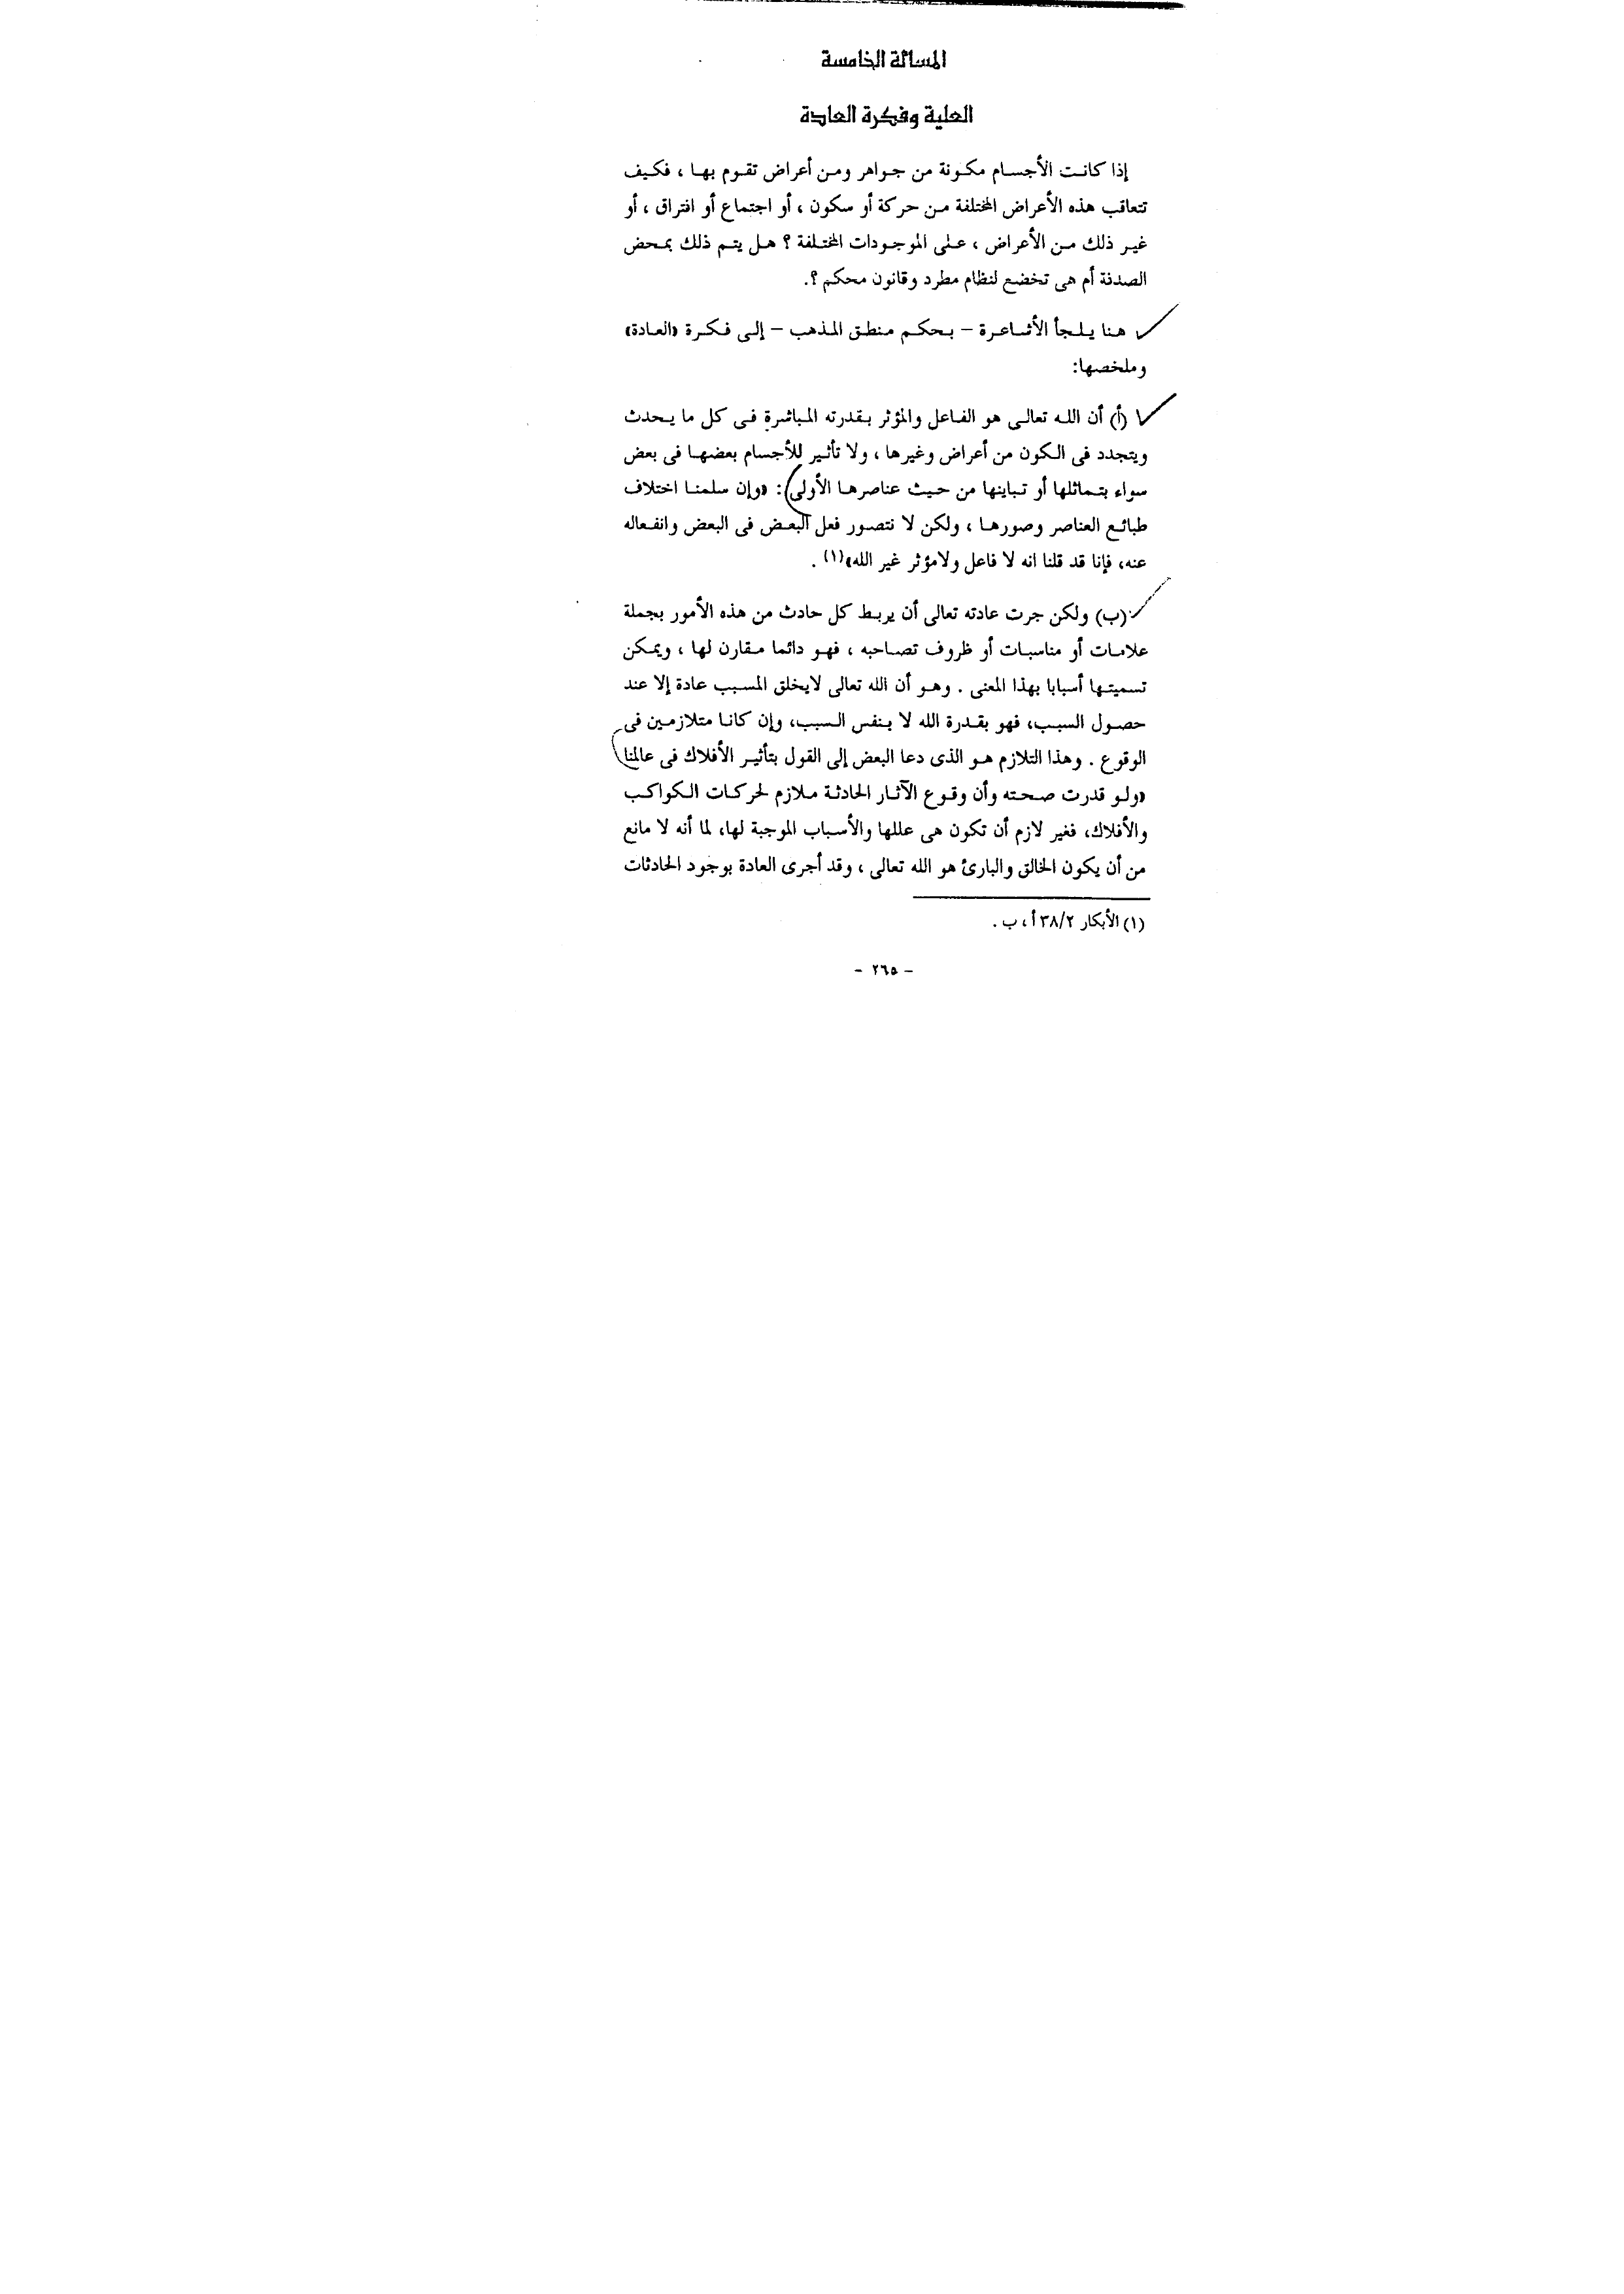 المسألة الخامسة
العلية وفكرة العادة
إذا كانت الأجسام مكونة من جواهر ومن أعراض تقوم بها ، فكيف
تتعاقب هذه الأعراض المختلفة من حركة أو سكون ، أو اجتماع أو افتراق ، أو
غير ذلك من الأعراض ، على الموجودات المختلفة ؟ هل يتم ذلك بمحض
الصدفة أم هى تخضع لنظام مطرد وقانون محكم ؟.
هنا يلجأ الأشاعرة – بحكم منطق المذهب – إلى فكرة «العادة»
وملخصها:
(أ) أن الله تعالى هو الفاعل والمؤثر بقدرته المباشرة فى كل ما يحدث
ويتجدد فى الكون من أعراض وغيرها ، ولا تأثير للأجسام بعضها فى بعض
سواء بتماثلها أو تباينها من حيث عناصرها الأولى : «وإن سلمنا اختلاف
طبائع العناصر وصورها ، ولكن لا نتصور فعل البعض فى البعض وانفعاله
عنه، فإنا قد قلنا انه لا فاعل ولامؤثر غير الله»(١) .
(ب) ولكن جرت عادته تعالى أن يربط كل حادث من هذه الأمور بجملة
علامات أو مناسبات أو ظروف تصاحبه ، فهو دائما مقارن لها ، ويمكن
تسميتها أسبابا بهذا المعنى . وهو أن الله تعالى لايخلق المسبب عادة إلا عند
حصول السبب، فهو بقدرة الله لا بنفس السبب، وإن كانا متلازمين فى
الوقوع . وهذا التلازم هو الذى دعا البعض إلى القول بتأثير الأفلاك فى عالمنا
«ولو قدرت صحته وأن وقوع الآثار الحادثة ملازم لحركات الكواكب
والأفلاك، فغير لازم أن تكون هى عللها والأسباب الموجبة لها، لما أنه لا مانع
من أن يكون الخالق والبارئ هو الله تعالى ، وقد أجرى العادة بوجود الحادثات
(١) الأبكار ٣٨/٢ أ ، ب .
– ٢٦٥ –